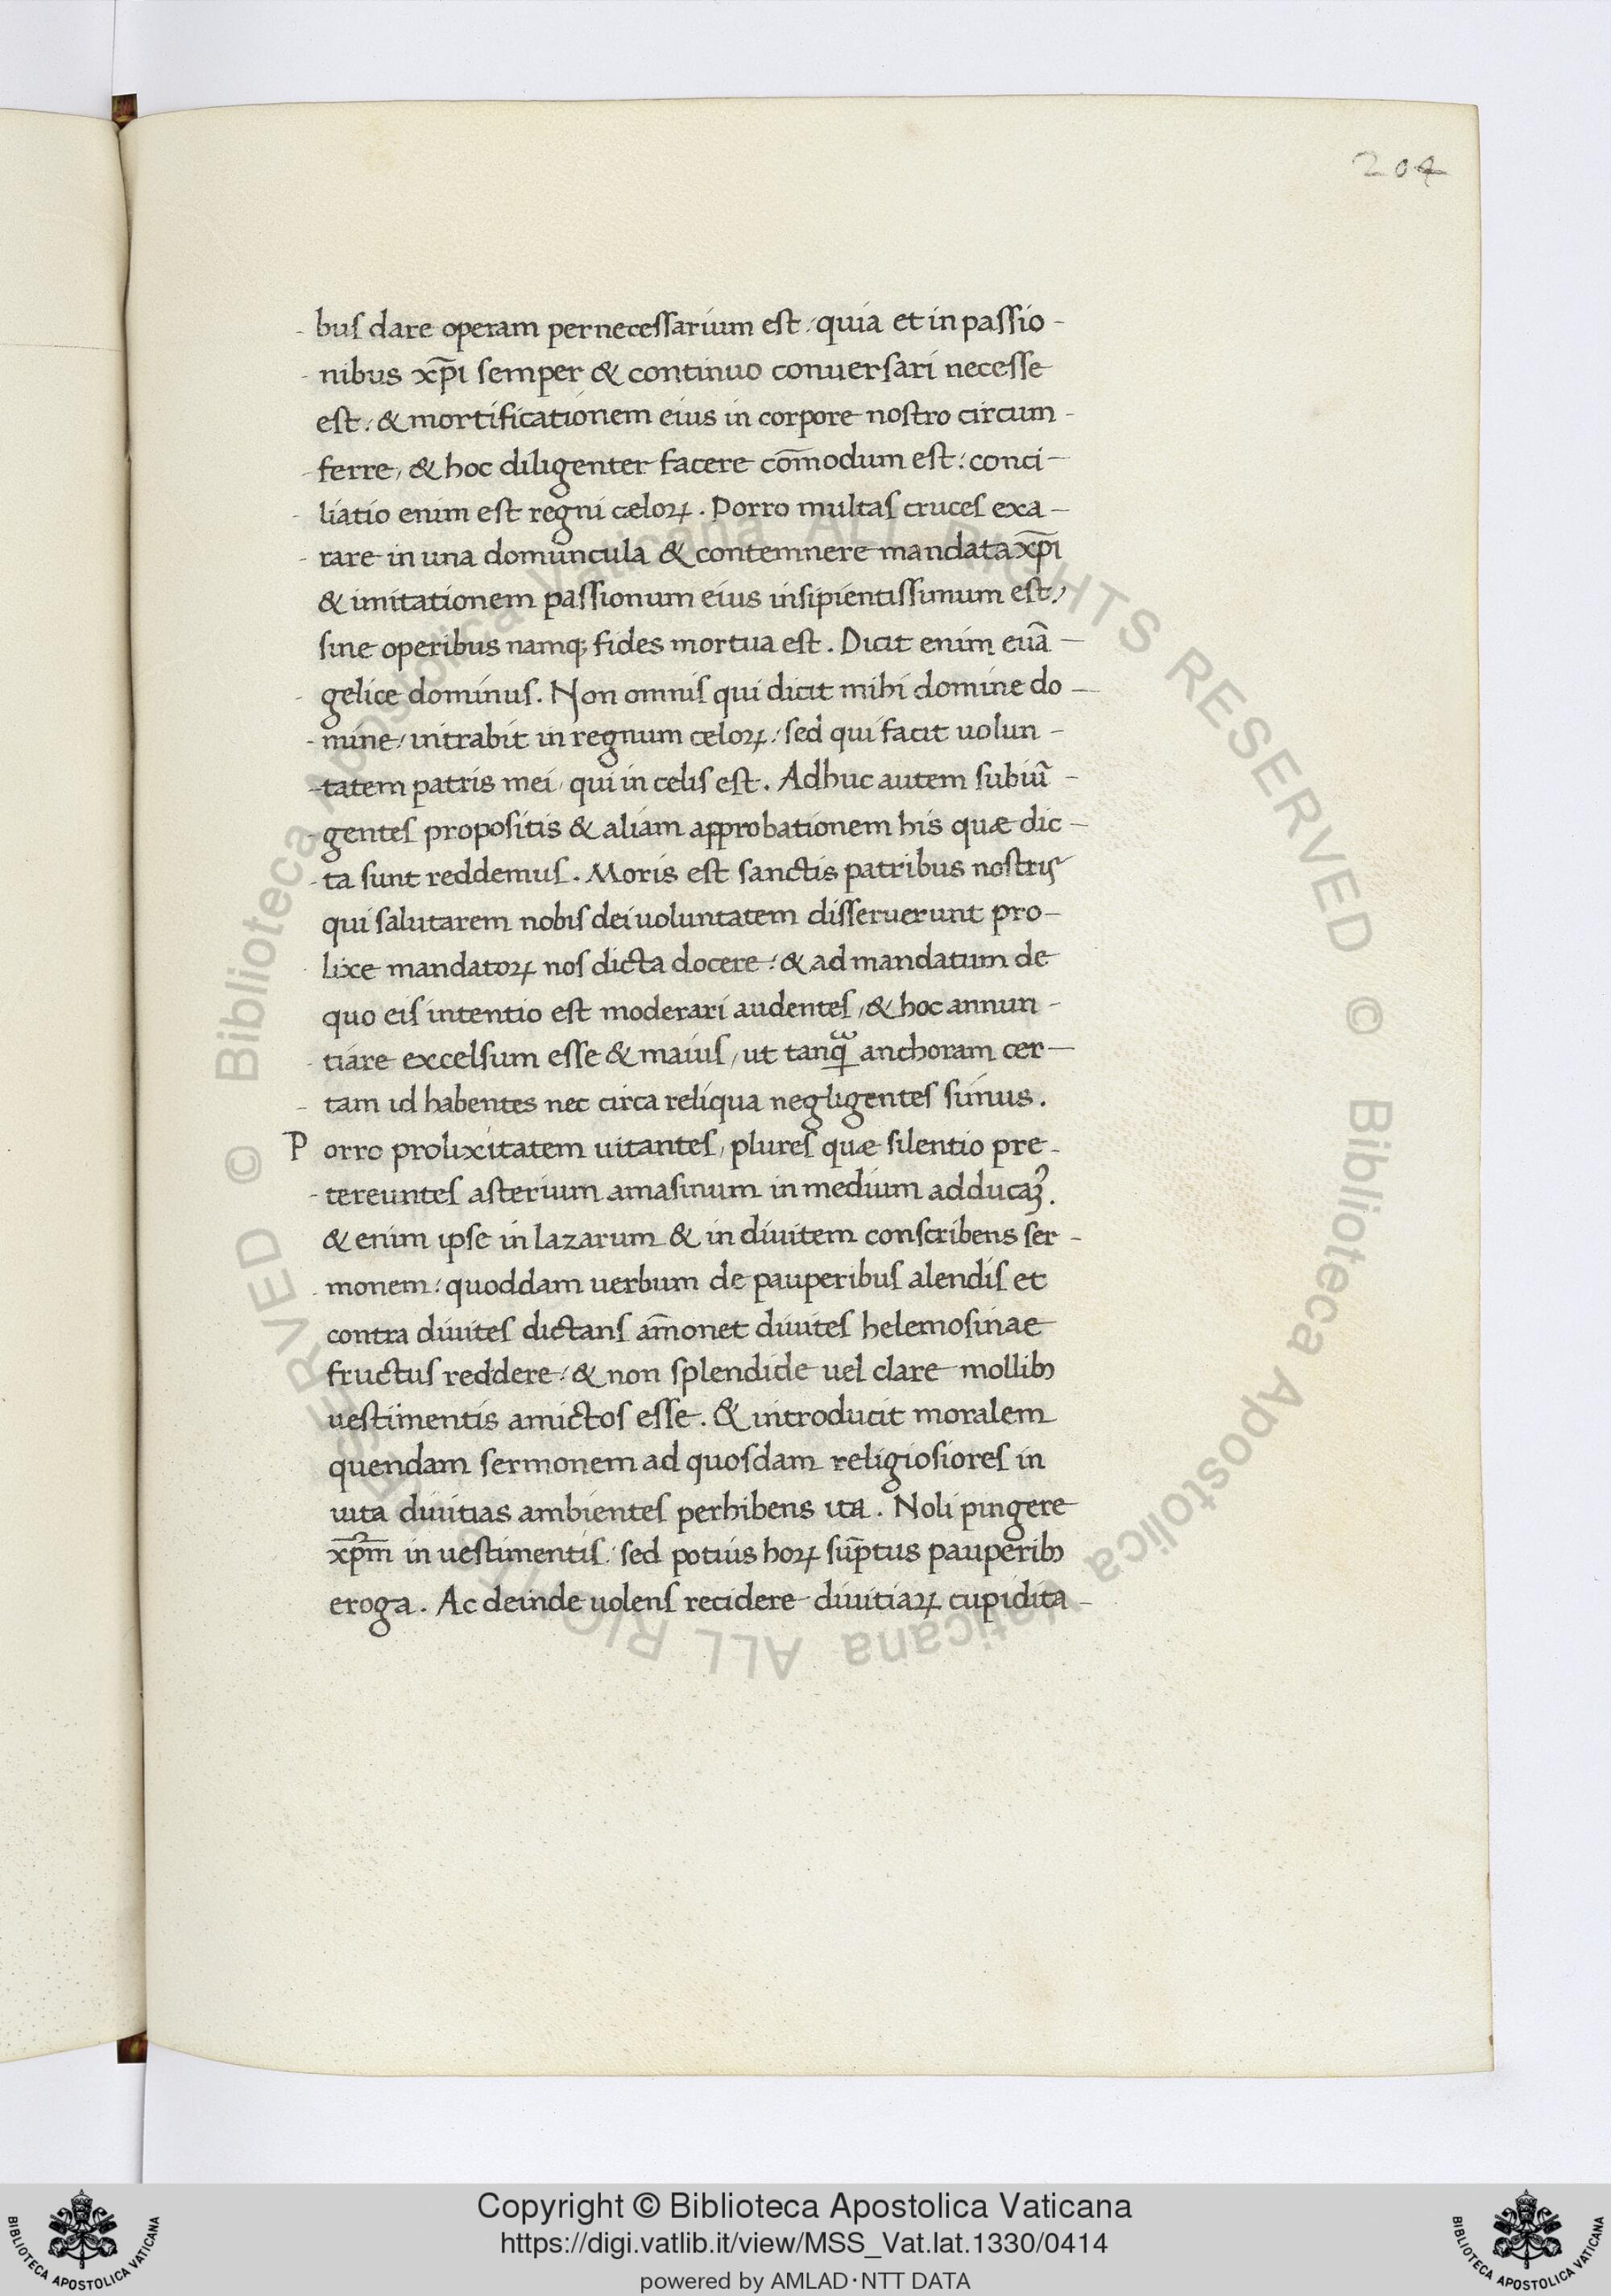 204
bus dare operam pernecessarium est: quia et in passio-
nibus xp̄i semper & continuo conuersari necesse
est: & mortificationem eius in corpore nostro circum-
ferre, & hoc diligenter facere com̄odum est: conci-
liatio enim est regni cælorꝝ. Porro multas cruces exa-
rare in una domuncula & contemnere mandata xp̄i
& imitationem passionum eius insipientissimum est,
sine operibus namq; fides mortua est. Dicit enim euā-
gelice dominus. Non omnis qui dicit mihi domine do-
mine, intrabit in regnum celoꝝ: sed qui facit uolun-
tatem patris mei, qui in celis est. Adhuc autem subiū-
gentes propositis & aliam approbationem his quæ dic-
ta sunt reddemus. Moris est sanctis patribus nostris
qui salutarem nobis dei uoluntatem disseruerunt pro-
lixe mandatoꝝ nos dicta docere: & ad mandatum de
quo eis intentio est moderari audentes, & hoc annun-
tiare excelsum esse & maius, ut tanꝙ̃ anchoram cer-
tam id habentes nec circa reliqua negligentes simus.
Porro prolixitatem uitantes, plures quæ silentio pre-
tereuntes asterium amasinum in medium adducaꝫ.
& enim ipse in lazarum & in diuitem conscribens ser-
monem: quoddam uerbum de pauperibus alendis et
contra diuites dictans am̄onet diuites helemosinae
fructus reddere: & non splendide uel clare mollibꝫ
uestimentis amictos esse. & introducit moralem
quendam sermonem ad quosdam religiosiores in
uita diuitias ambientes perhibens ita. Noli pingere
xp̄m in uestimentis: sed potius hoꝝ sūptus pauperibꝫ
eroga. Ac deinde uolens recidere diuitiaꝝ cupidita-
© Biblioteca Apostolica Vaticana ALL RIGHTS RESERVED © Biblioteca Apostolica Vaticana ALL RIGHTS RESERVED
Copyright © Biblioteca Apostolica Vaticana
https://digi.vatlib.it/view/MSS_Vat.lat.1330/0414
powered by AMLAD·NTT DATA
BIBLIOTECA APOSTOLICA VATICANA
BIBLIOTECA APOSTOLICA VATICANA